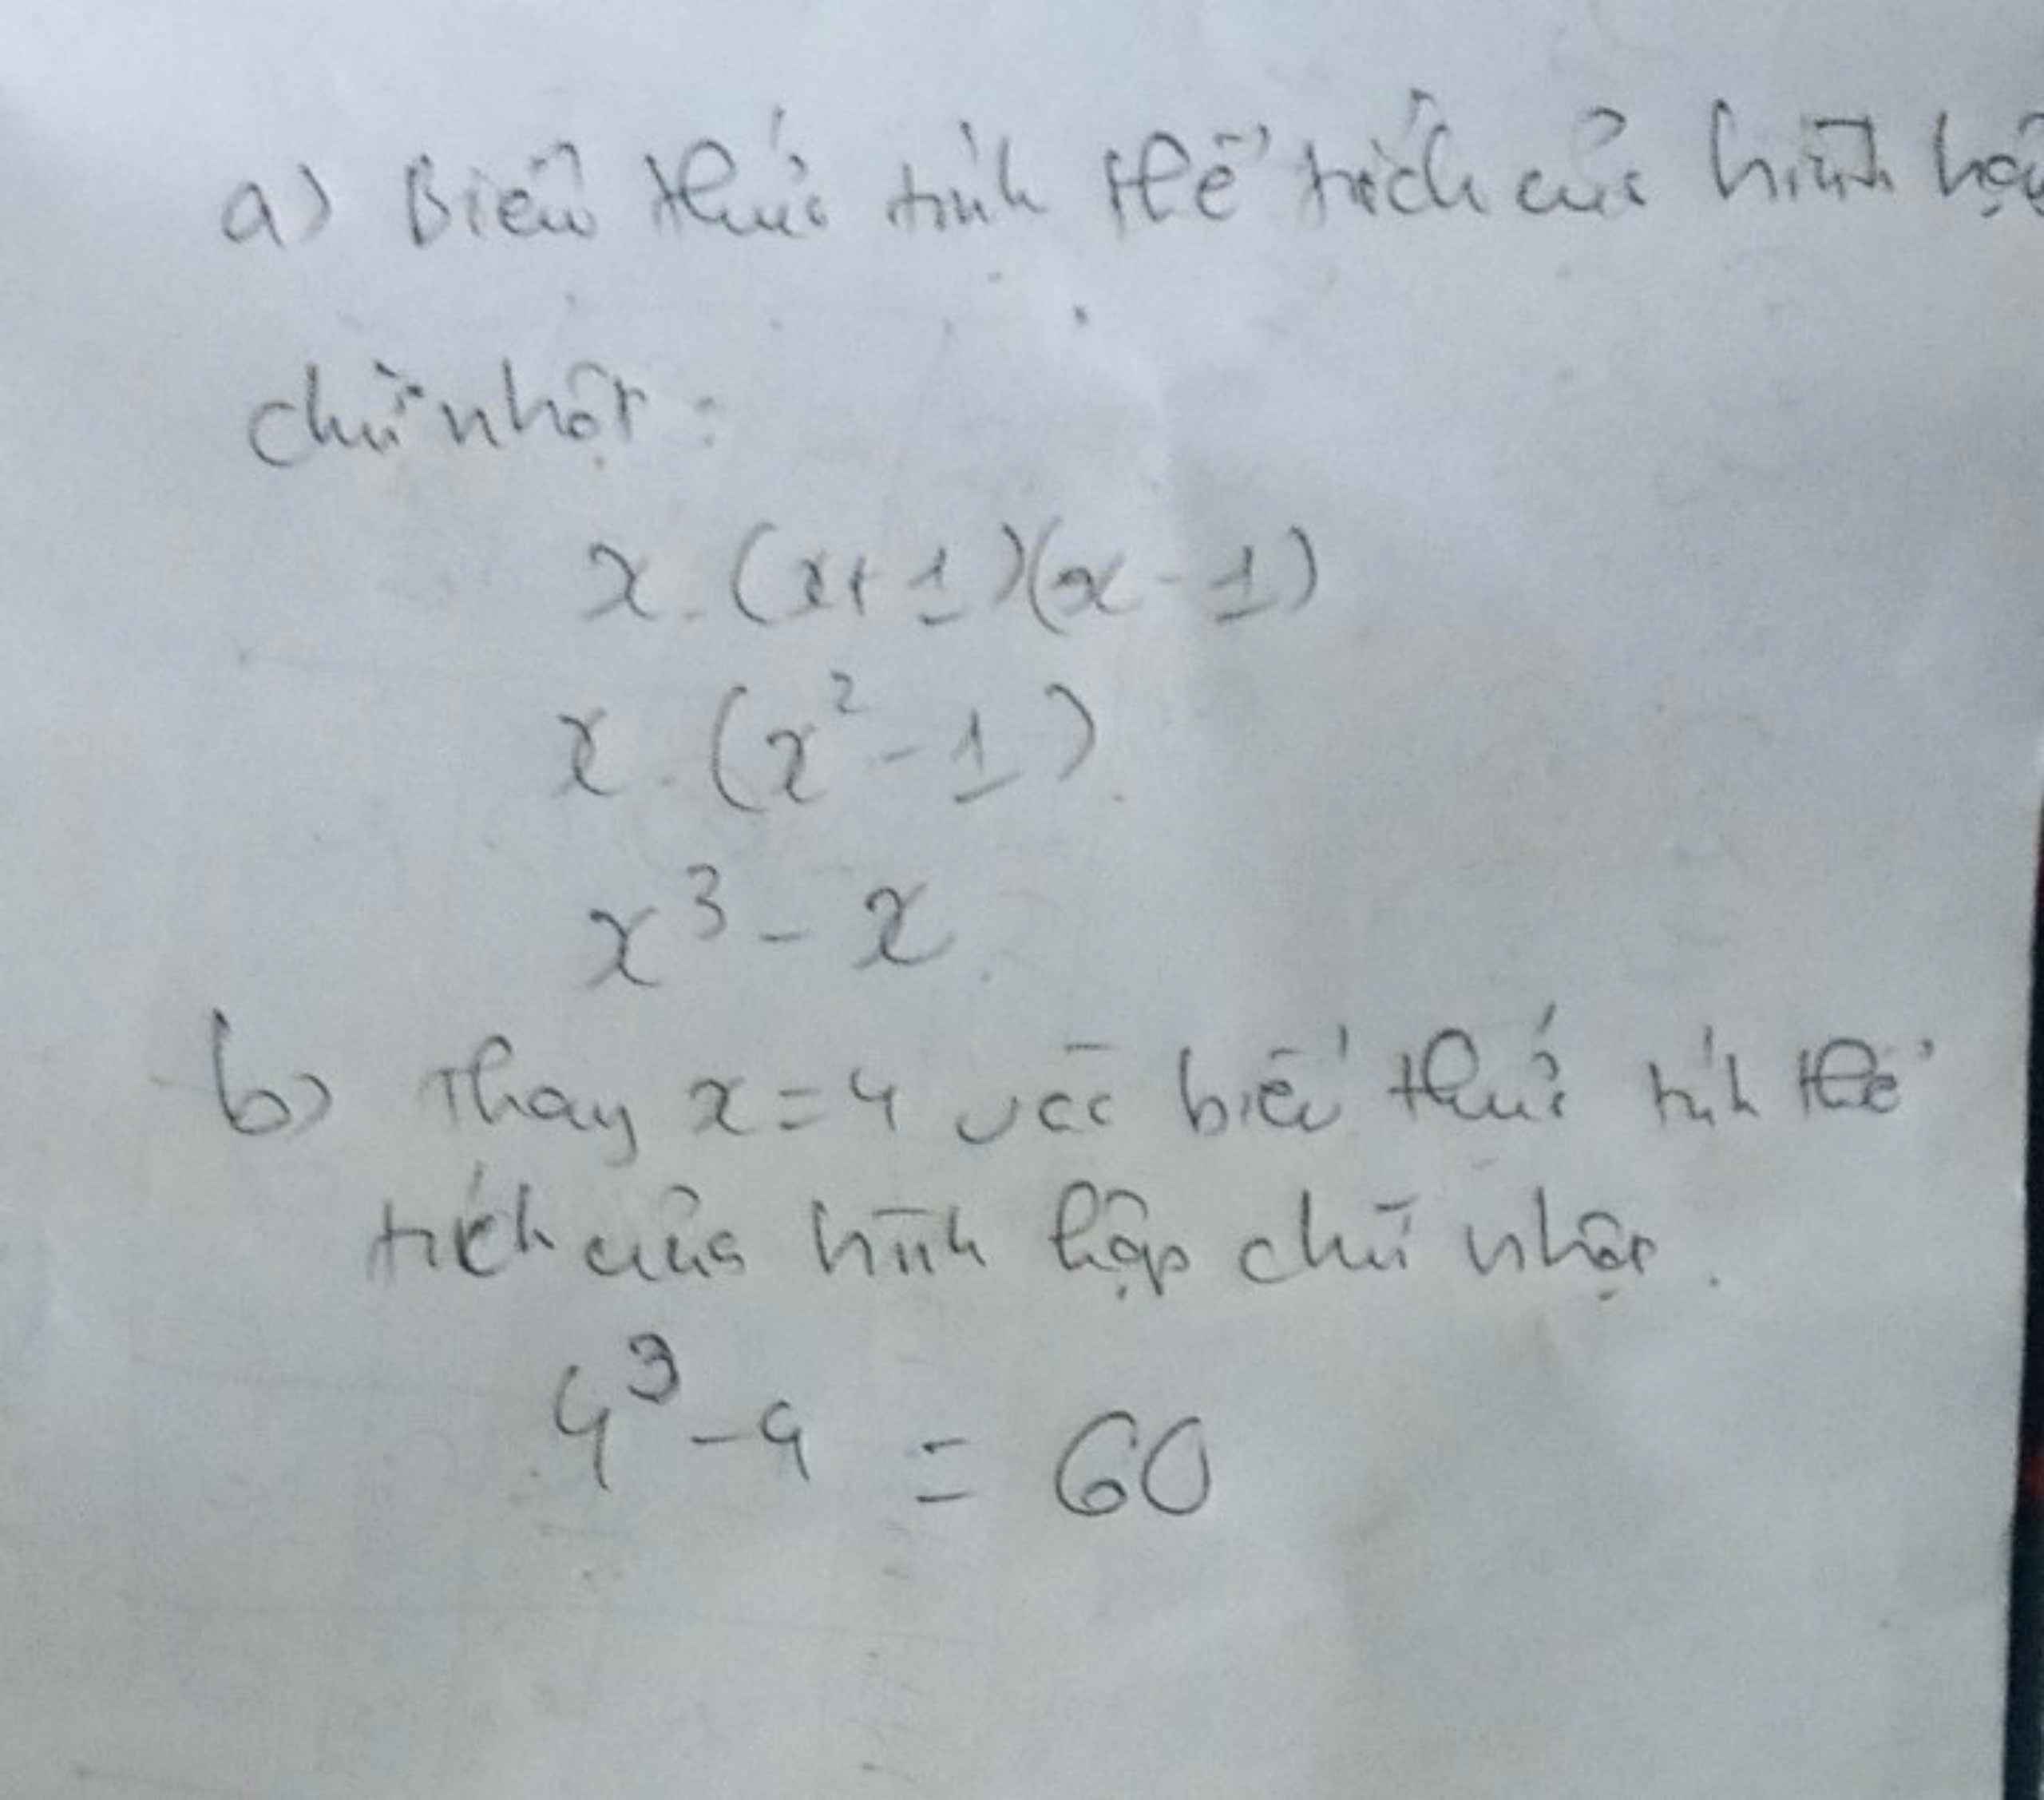 a) Biểu thức tính thể tích của hình hộp
chữ nhật:
x. (x+1)(x-1)
x. (x²-1).
x³ - x.
b) Thay x=4 vào biểu thức tính thể
tích của hình hộp chữ nhật.
4³ - 4 = 60